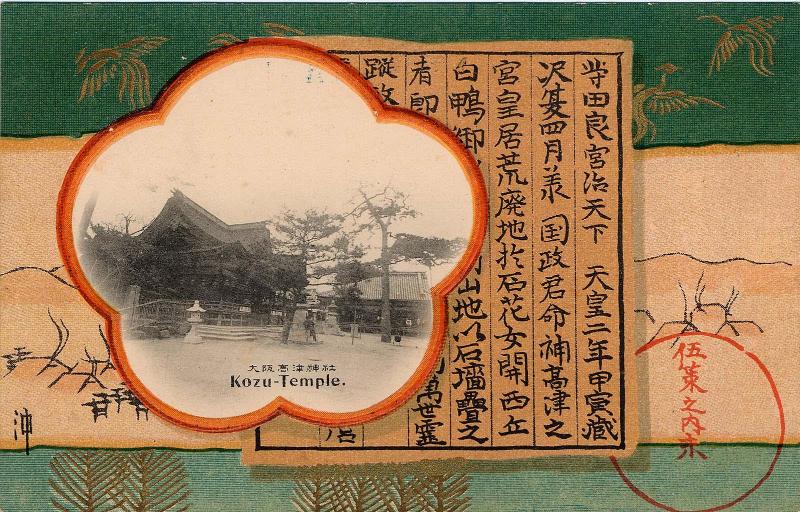 田良宮治天下 天皇二年甲寅
夏四月 国政君命神髙津之
宮皇居荒廃地於石花女開西丘
白鴨御
山地以石墻疊之
者即
萬世霊
蹤故
大阪高津神社
Kozu-Temple.
伍策之内
沖